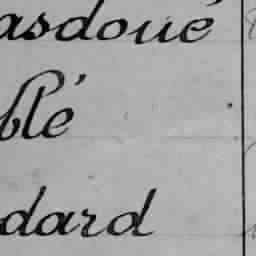 asdoué
blé
dard